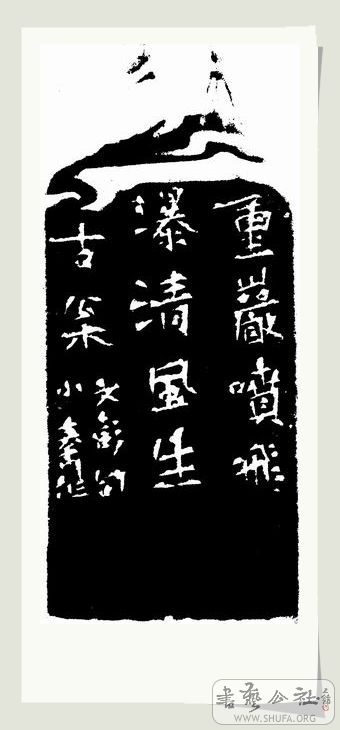 重巖噴飛
瀑清風生
古梁
文彭句
小秦作
書藝公社
WWW.SHUFA.ORG